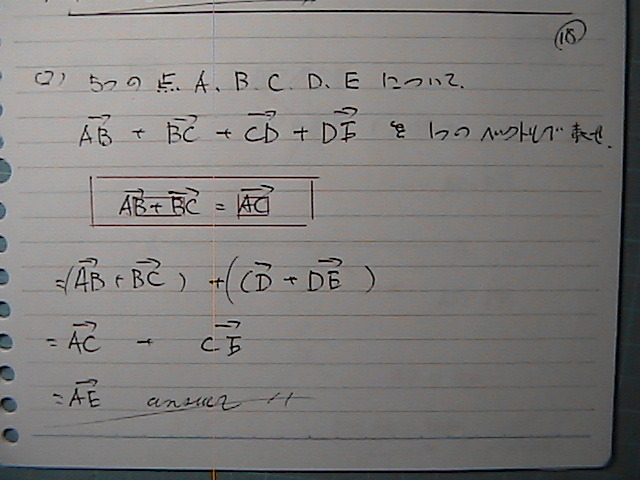 18
(2) 5つの点、A、B、C、D、Eについて、
AB→ + BC→ + CD→ + DE→ を1つのベクトルで表せ。
AB→ + BC→ = AC→
=(AB→ + BC→) + (CD→ + DE→)
= AC→ + CE→
= AE→ answer 〃